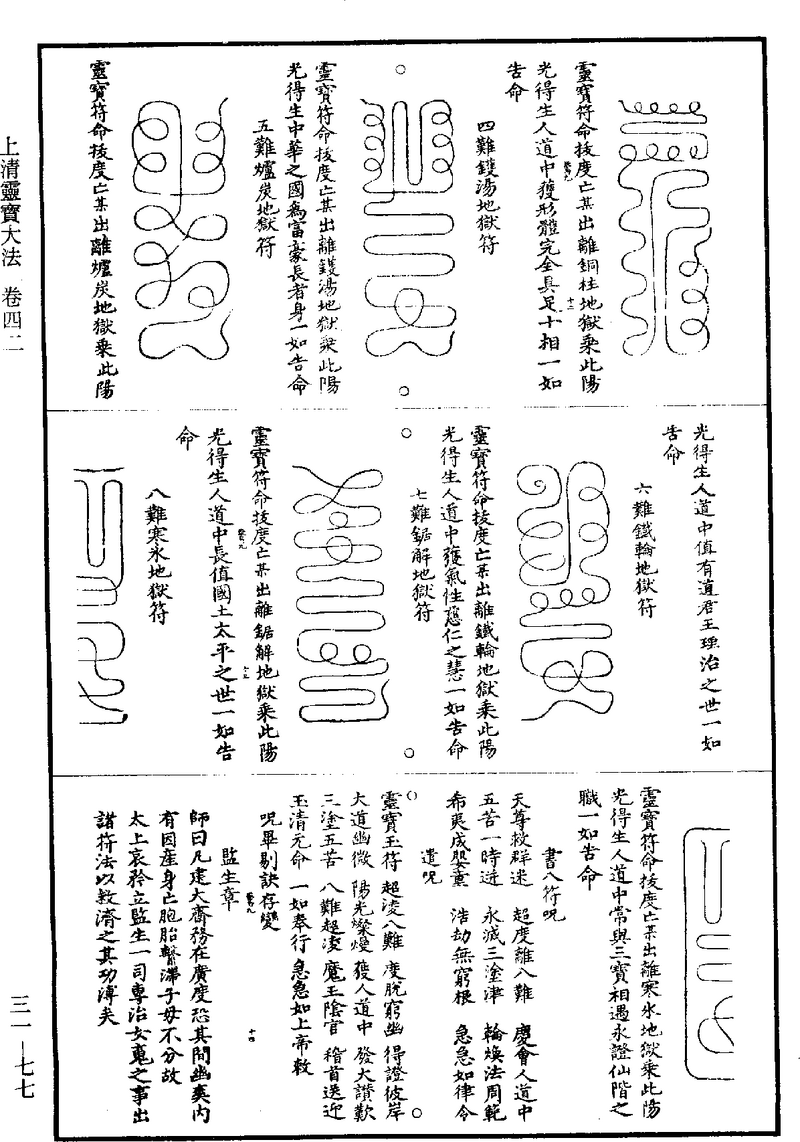 上清靈寶大法 卷四二
三一—七七
靈寶符命拔度亡某出離銅柱地獄乘此陽
光得生人道中獲形體完全具足十相一如
告命
四難鑊湯地獄符
靈寶符命拔度亡某出離鑊湯地獄乘此陽
光得生中華之國為富豪長者身一如告命
五難爐炭地獄符
靈寶符命拔度亡某出離爐炭地獄乘此陽
光得生人道中值有道君王理治之世一如
告命
六難鐵輪地獄符
靈寶符命拔度亡某出離鐵輪地獄乘此陽
光得生人道中獲氣性慈仁之慧一如告命
七難鋸解地獄符
靈寶符命拔度亡某出離鋸解地獄乘此陽
光得生人道中長值國土太平之世一如告
命
八難寒氷地獄符
靈寶符命拔度亡某出離寒氷地獄乘此陽
光得生人道中常與三寶相遇永證仙階之
職一如告命
書八符呪
天尊救群迷 超度離八難 慶會人道中
五苦一時逝 永滅三塗津 輪煥法周範
希夷成嬰熏 浩劫無窮根 急急如律令
遣呪
靈寶玉符 超淩八難 度脫窮幽 得證彼岸
大道幽微 陽光燦熳 獲人道中 發大讚歎
三塗五苦 八難超淩 魔王陰官 稽首送迎
玉清元命 一如奉行 急急如上帝敕
呪畢剔訣存變
監生章
師曰凡建大齋務在廣度恐其間幽爽內
有因產身亡胞胎繫滯子母不分故
太上哀矜立監生一司專治女冤之事出
諸符法以救濟之其功溥矣